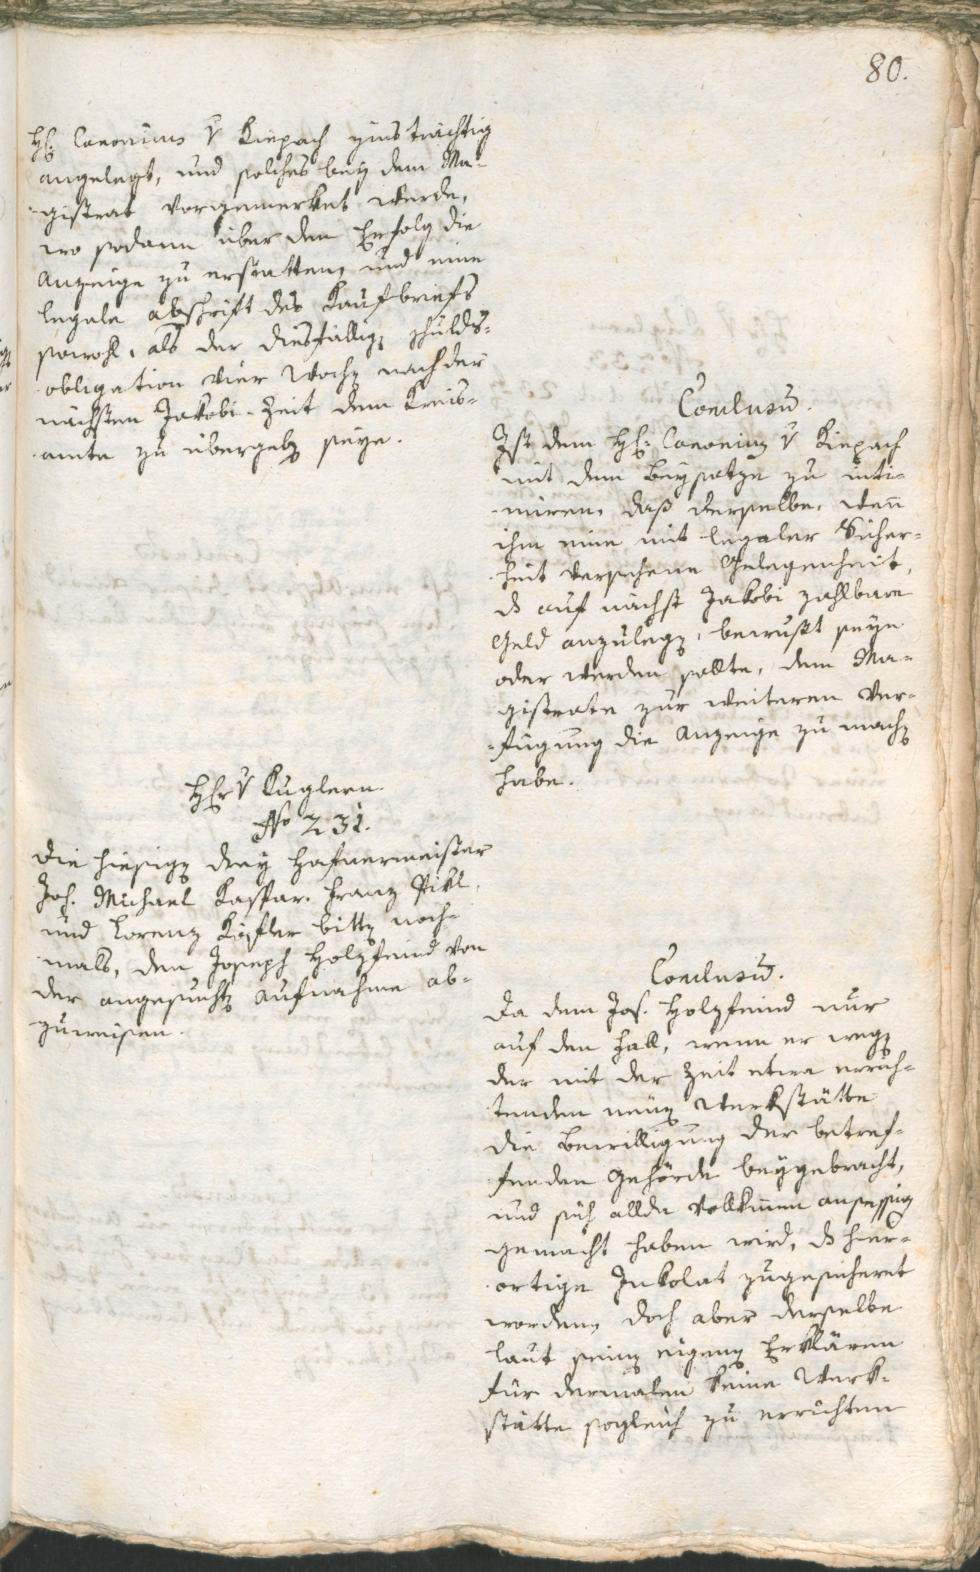 80.
H: Canonicus v Kiepach zinsträchtig
angelegt, und solches beÿ dem Ma-
gistrat vorgemerket werde,
wo sodann über den Erfolg die
Anzeige zu erstatten, und eine
legale abschrift des Kaufbriefs
sowohl, als der diesfällig schulds-
obligation vier Woch nach der
nächsten Jakobi-Zeit dem Kreis-
amte zu übergeb seÿe.
Conclusū.
Ist dem H: Canonicus v Kiepach
mit dem Beÿsatze zu inti-
miren, daß derselbe, wen̄
ihm eine mit legaler Sicher-
heit versehene Gelegenheit,
ds auf nächst Jakobi zahlbare
Geld anzuleg, bewußt seÿe
oder werden sollte, dem Ma-
gistrate zur weiteren Ver-
fügung die Anzeige zu mach
habe.
H: v Kuglern.
No 231.
Die hiesig dreÿ Hafnermeister
Joh. Michael Kaspar. Franz Pikl,
und Lorenz Köfler bitt noch-
mals, den Joseph Holzfeind von
der angesucht Aufnahme ab-
zuweisen.
Conclusū.
Da dem Jos. Holzfeind nur
auf den Fall, wenn er weg
der mit der Zeit etwa errich-
tenden neu Werkstätte
die Bewilligung der betref-
fenden Gehörde beÿgebracht,
und sich allda vollkom̄en ansessig
gemacht haben wird, ds hier-
ortige Inkolat zugesicheret
worden, doch aber derselbe
laut sein eigen Erklären
für dermalen keine Werk-
stätte sogleich zu errichten